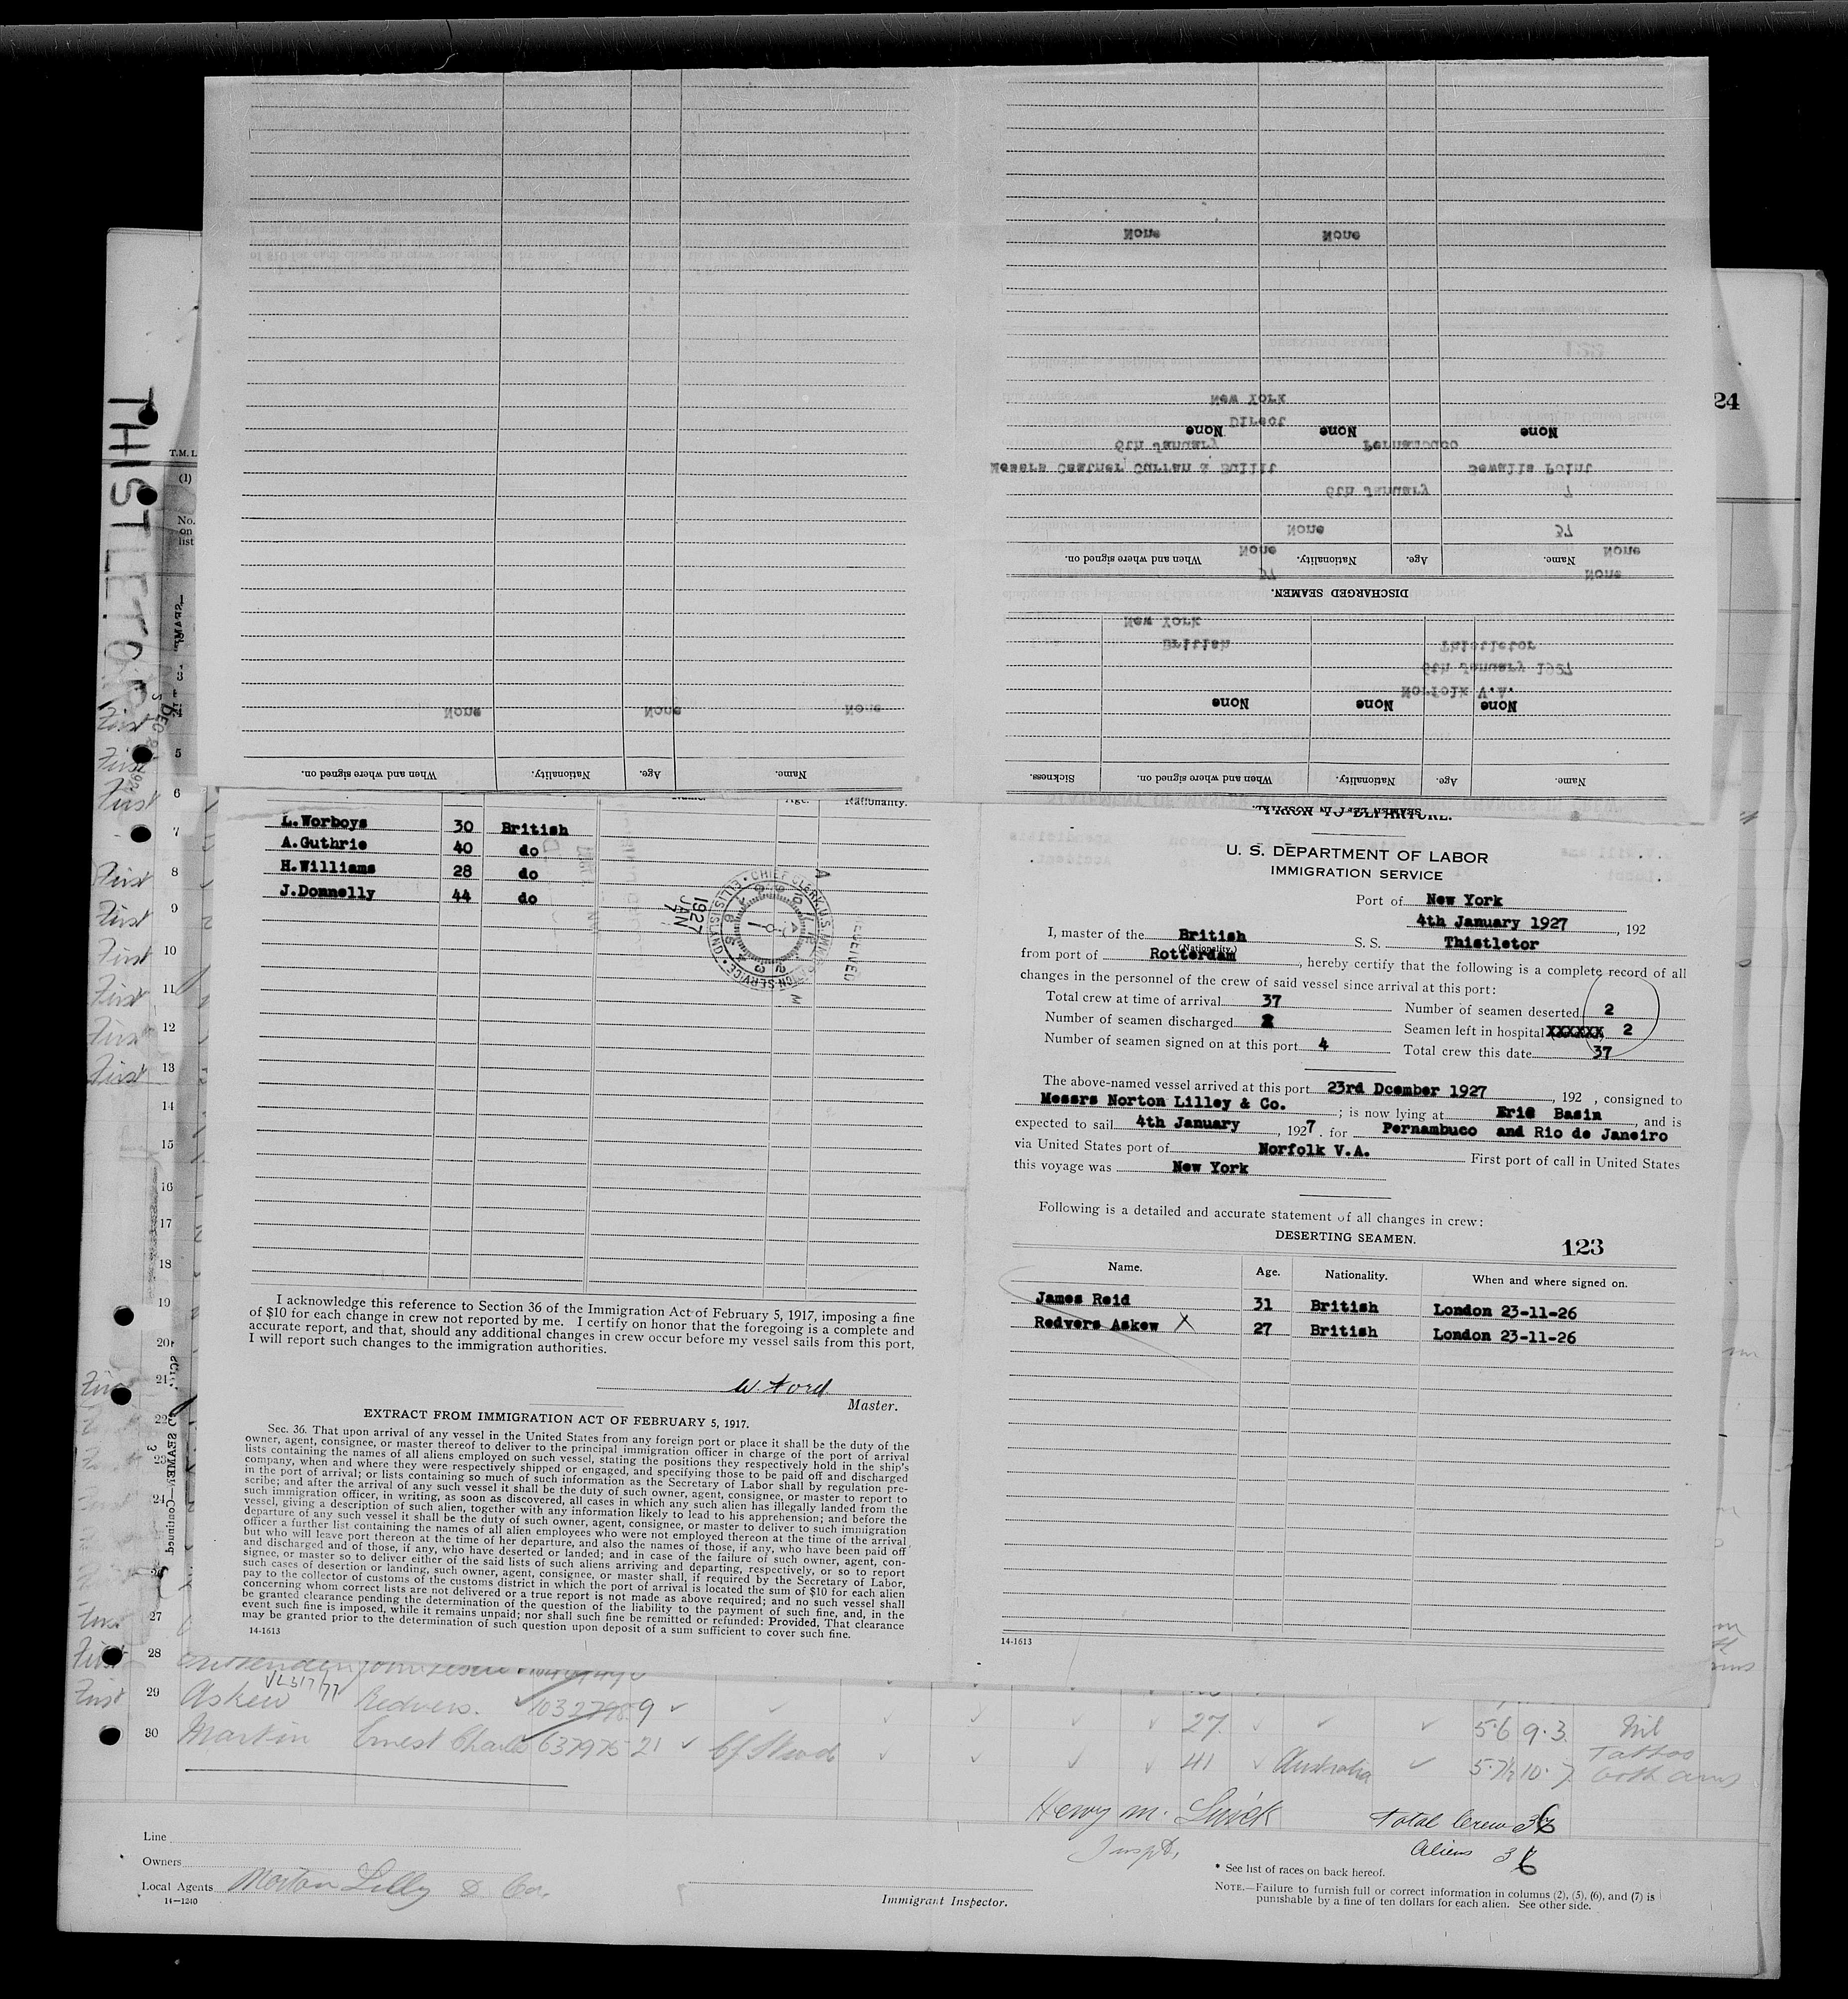 THISTLETOR
24
T.M.L
(1)
No.
on
list
None None
New York
Direct
None None None
6th January Pernambuco
Messrs Castner Curran & Bullit Sewalls Point
6th January 7
None 37
None None
Name. Age. Nationality. When and where signed on.
37 None
DISCHARGED SEAMEN.
New York
British Thistletor
6th January 1927
Norfolk V.A.
None None None
None None None
Name. Age. Nationality. When and where signed on.
Name. Age. Nationality. When and where signed on. Sickness.
SEAMEN LEFT IN HOSPITAL.
PRIOR TO DEPARTURE.
Age. Nationality.
L.Worboys 30 British
A.Guthrie 40 do
H.Williams 28 do
J.Donnelly 44 do
RECEIVED
1927
JAN
7
CHIEF CLERK, U.S. IMMIGRATION SERVICE • ELLIS ISLAND
I acknowledge this reference to Section 36 of the Immigration Act of February 5, 1917, imposing a fine
of $10 for each change in crew not reported by me. I certify on honor that the foregoing is a complete and
accurate report, and that, should any additional changes in crew occur before my vessel sails from this port,
I will report such changes to the immigration authorities.
W. Ford
Master.
EXTRACT FROM IMMIGRATION ACT OF FEBRUARY 5, 1917.
Sec. 36. That upon arrival of any vessel in the United States from any foreign port or place it shall be the duty of the
owner, agent, consignee, or master thereof to deliver to the principal immigration officer in charge of the port of arrival
lists containing the names of all aliens employed on such vessel, stating the positions they respectively hold in the ship's
company, when and where they were respectively shipped or engaged, and specifying those to be paid off and discharged
in the port of arrival; or lists containing so much of such information as the Secretary of Labor shall by regulation pre-
scribe; and after the arrival of any such vessel it shall be the duty of such owner, agent, consignee, or master to report to
such immigration officer, in writing, as soon as discovered, all cases in which any such alien has illegally landed from the
vessel, giving a description of such alien, together with any information likely to lead to his apprehension; and before the
departure of any such vessel it shall be the duty of such owner, agent, consignee, or master to deliver to such immigration
officer a further list containing the names of all alien employees who were not employed thereon at the time of the arrival
but who will leave port thereon at the time of her departure, and also the names of those, if any, who have been paid off
and discharged and of those, if any, who have deserted or landed; and in case of the failure of such owner, agent, con-
signee, or master so to deliver either of the said lists of such aliens arriving and departing, respectively, or so to report
such cases of desertion or landing, such owner, agent, consignee, or master shall, if required by the Secretary of Labor,
pay to the collector of customs of the customs district in which the port of arrival is located the sum of $10 for each alien
concerning whom correct lists are not delivered or a true report is not made as above required; and no such vessel shall
be granted clearance pending the determination of the question of the liability to the payment of such fine, and, in the
event such fine is imposed, while it remains unpaid; nor shall such fine be remitted or refunded: Provided, That clearance
may be granted prior to the determination of such question upon deposit of a sum sufficient to cover such fine.
14-1613
U. S. DEPARTMENT OF LABOR
IMMIGRATION SERVICE
Port of New York
4th January 1927, 192
I, master of the British S. S. Thistletor
(Nationality.)
from port of Rotterdam, hereby certify that the following is a complete record of all
changes in the personnel of the crew of said vessel since arrival at this port:
Total crew at time of arrival 37 Number of seamen deserted 2
Number of seamen discharged Seamen left in hospital XXXXXX 2
Number of seamen signed on at this port 4 Total crew this date 37
The above-named vessel arrived at this port 23rd Dcember 1927, 192 , consigned to
Messrs Norton Lilley & Co. ; is now lying at Erie Basin, and is
expected to sail 4th January, 1927. for Pernambuco and Rio de Janeiro
via United States port of Norfolk V.A. First port of call in United States
this voyage was New York
Following is a detailed and accurate statement of all changes in crew:
DESERTING SEAMEN.
123
Name. Age. Nationality. When and where signed on.
James Reid 31 British London 23-11-26
Redvers Askew X 27 British London 23-11-26
14-1613
First
3
First
5
First
6
7
First 8
First 9
First 10
First 11
First 12
First 13
14
15
16
17
18
19
20
First 21
22
23
24
SEAMEN—Continued.
First 27
First 28
First 29 Askew Redvers. 9 27 5·6 9·3. Nil
30 Martin Ernest Charles 637975 21 41 Australia 5·7½ 10·7 Tattoo
both arms
Henry M. Total Crew 36
Inspt. Aliens 36
Line
Owners
Local Agents Norton Lilly & Co.
14—1240
Immigrant Inspector.
* See list of races on back hereof.
NOTE.—Failure to furnish full or correct information in columns (2), (5), (6), and (7) is
punishable by a fine of ten dollars for each alien. See other side.